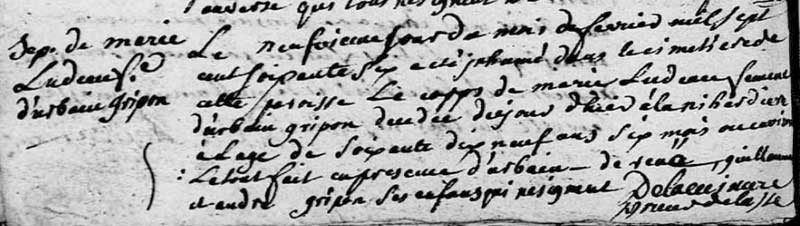 qui
Sep. de marie
Ludeau f.e
d'urbain gripon
Le neufvieme jour du mois de fevrier mil sept
cent soixante six a eté inhumé dans le cimetiere de
cette paroisse Le corps de marie Ludeau femme
d'urbain gripon decedée du jour d'hier à la
à l'age de soixante dix neuf ans six mois ou environ
: Le tout fait en presence d'urbain de rené, guillaume
et andré gripon ses enfans qui ne signent